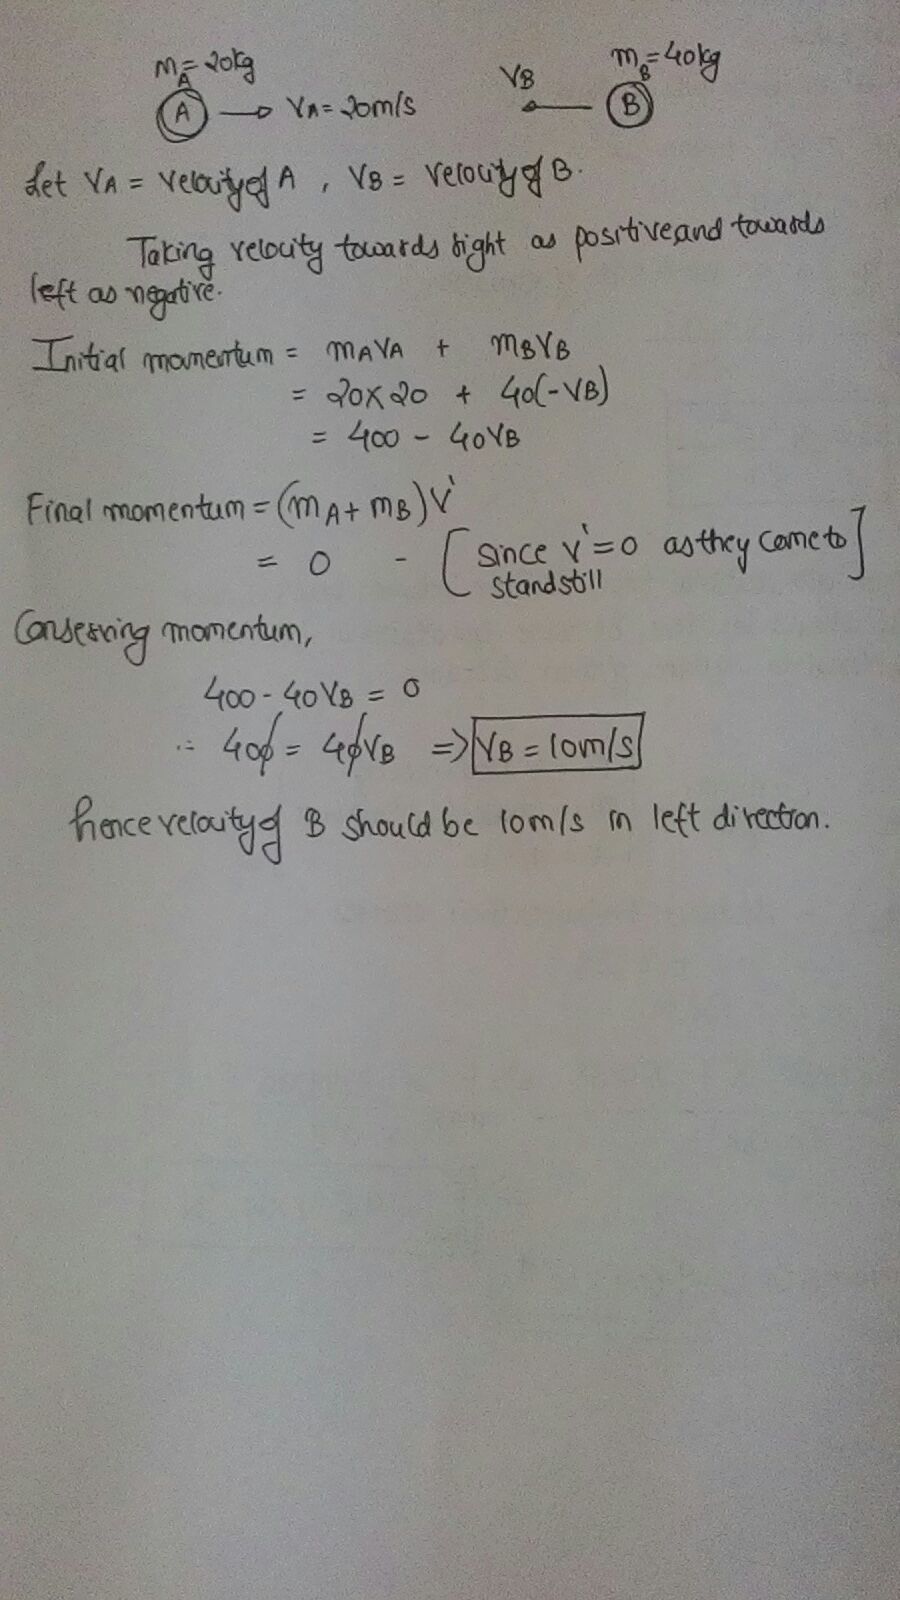 mA = 20kg
mB = 40kg
A → VA = 20m/s
VB ← B
Let VA = velocity of A , VB = velocity of B.
Taking velocity towards right as positive and towards
left as negative.
Initial momentum = mAVA + mBVB
= 20×20 + 40(-VB)
= 400 - 40VB
Final momentum = (mA + mB)V'
= 0 - [since V' = 0 as they come to
standstill]
Conserving momentum,
400 - 40VB = 0
∴ 400 = 40VB ⇒ VB = 10m/s
hence velocity of B should be 10m/s in left direction.